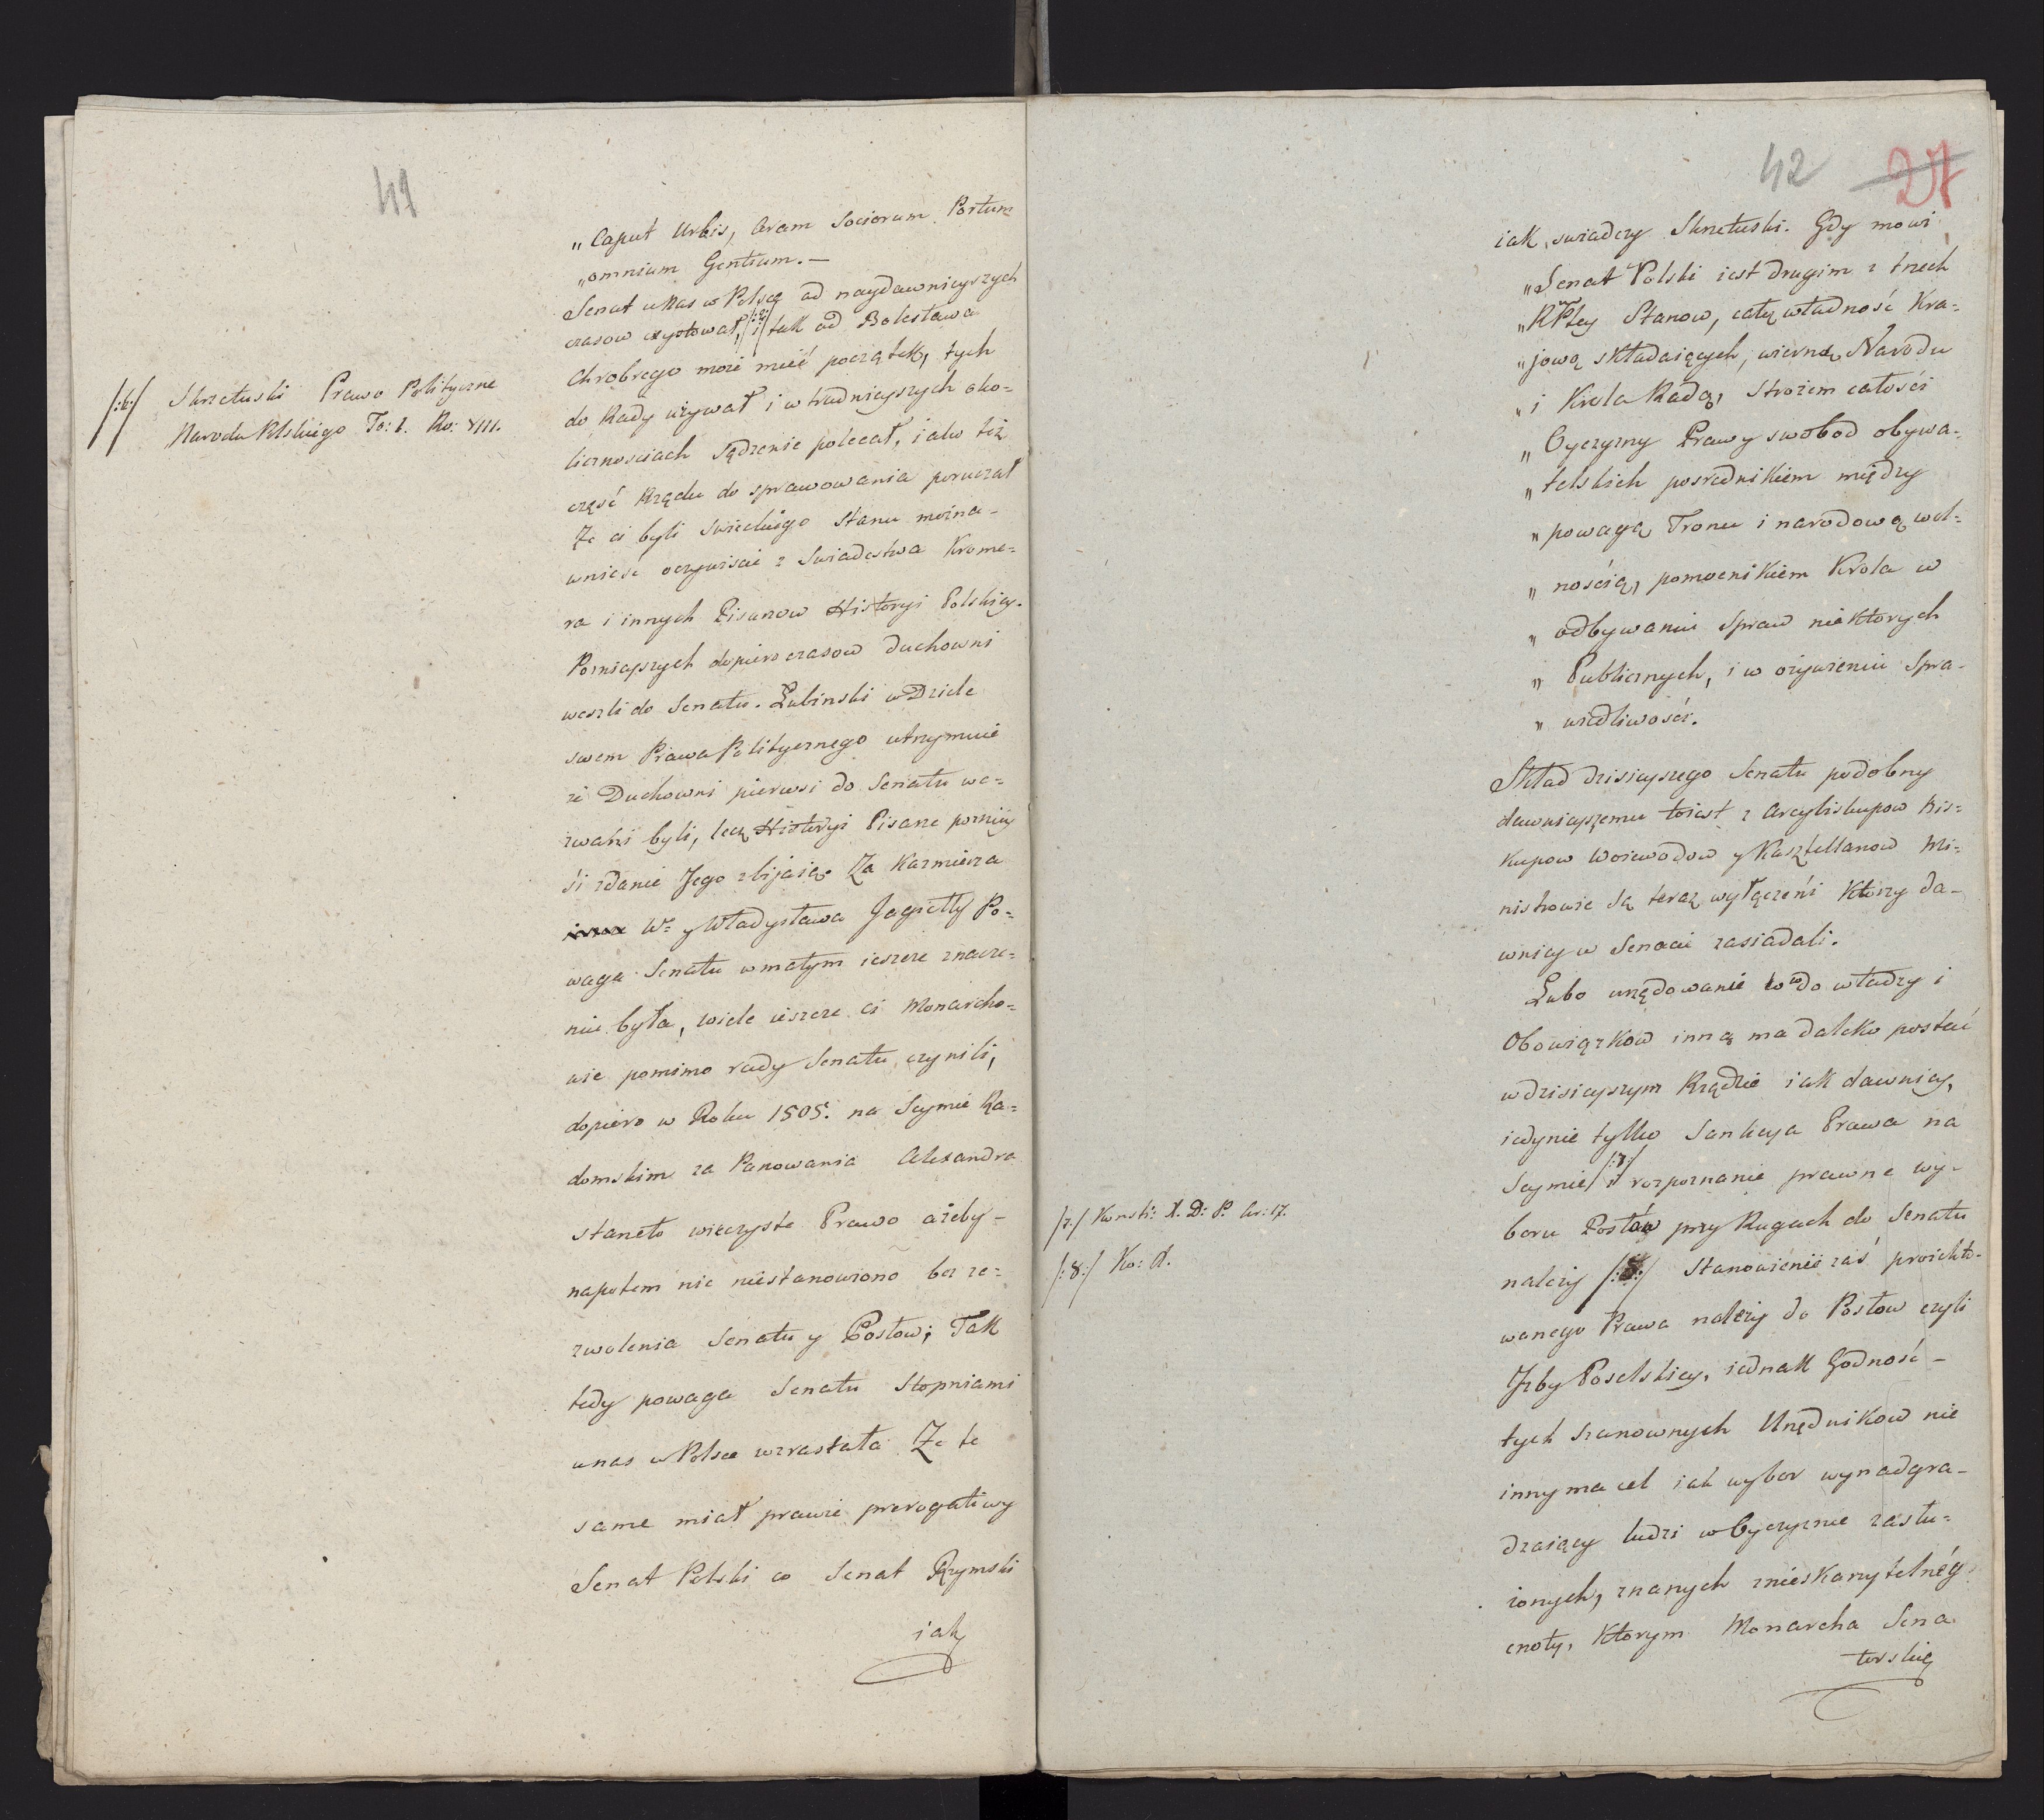 41
„Caput Urbis, Aram Sociorum Portum
„omnium Gentium.—
Senat u Nas w Polscę od naydawnieyszych
czasow exystował, /:6:/ i tak od Bolesława
Chrobrego może mieć początek, tych
do Rady używał i w trudnieyszych oko-
licznościach Sądzenie polecał, iako też
część Rządu do sprawowania poruczał
Ze ci byli swieckiego Stanu można-
wnieść oczywiscie z Swiadectwa Krome-
ra i innych Pisarzow Historyi Polskiey.
Poznieyszych dopiero czasow duchowni
weszli do Senatu. Łubinski w Dziele
swem Prawa Politycznego utrzymuie
że Duchowni pierwsi do Senatu we-
zwani byli, lecz Historyi Pisarze poźniey
śi zdanie Jego zbijaią. Za Kazmierza
W: y Władysława Jagiełły Po-
waga Senatu w małym ieszcze znacze-
niu była, wiele ieszcze ci Monarcho-
wie pomimo rady Senatu czynili,
dopiero w Roku 1505. na Seymie Ra-
domskim za Panowania Alexandra
staneło wieczyste Prawo ażeby-
napotem nic niestanowiono bez ze-
zwolenia Senatu y Posłow; Tak
tedy powaga Senatu Stopniami
u nas w Polsce wzrastała Ze te
same miał prawie prerogatiwy
Senat Polski co Senat Rzymski
iak
/:6:/ Skrzetuski Prawo Polityczne
Narodu Polskiego To: 1. Ro: VIII.
42 27
iak swiadczy Skrzetuski. Gdy mowi
„Senat Polski iest drugim z trzech
„RPltey Stanow, całą władność Kra-
„jową składaiących, wierną Narodu
„i Krola Radą, Strożem całości
„Oyczyzny Prawy swobod obywa-
„telskich posrednikiem między
„powagą Tronu i narodową wol-
„nością, pomocnikiem Krola w
„odbywaniu Spraw niektorych
„Publicznych, i w ożywieniu Spra-
„wiedliwości.
Skład dzisieyszego Senatu podobny
dawnieyszemu toiest z Arcybiskupow Bis-
kupow Woiewodow y Kasztellanow Mi-
nistrowie są teraz wyłączeni Ktorzy da-
wniey w Senacie zasiadali.
Lubo urzędowanie co do władzy i
Obowiązkow inną ma daleko postać
w dzisieyszym Rządzie iak dawniey,
iedynie tylko Sankcya Prawa na
Seymie /:7:/ i rozpoznanie prawne wy-
boru Posłów przy Rugach do Senatu
należy /:8:/ Stanowienie zaś proiekto-
wanego Prawa należy do Posłow czyli
Jzby Poselskiey, iednak Godność-
tych szanownych Urzędnikow nie
inny ma cel iak wybor wynadgra-
dzaiący ludzi w Oyczyznie zasłu-
żonych, znanych z nieskazytelnéy
cnoty, Ktorym Monarcha Sena
torskię
/:7:/ Konsti: X. D: P. Ar: 17.
/:8:/ Ko: X.